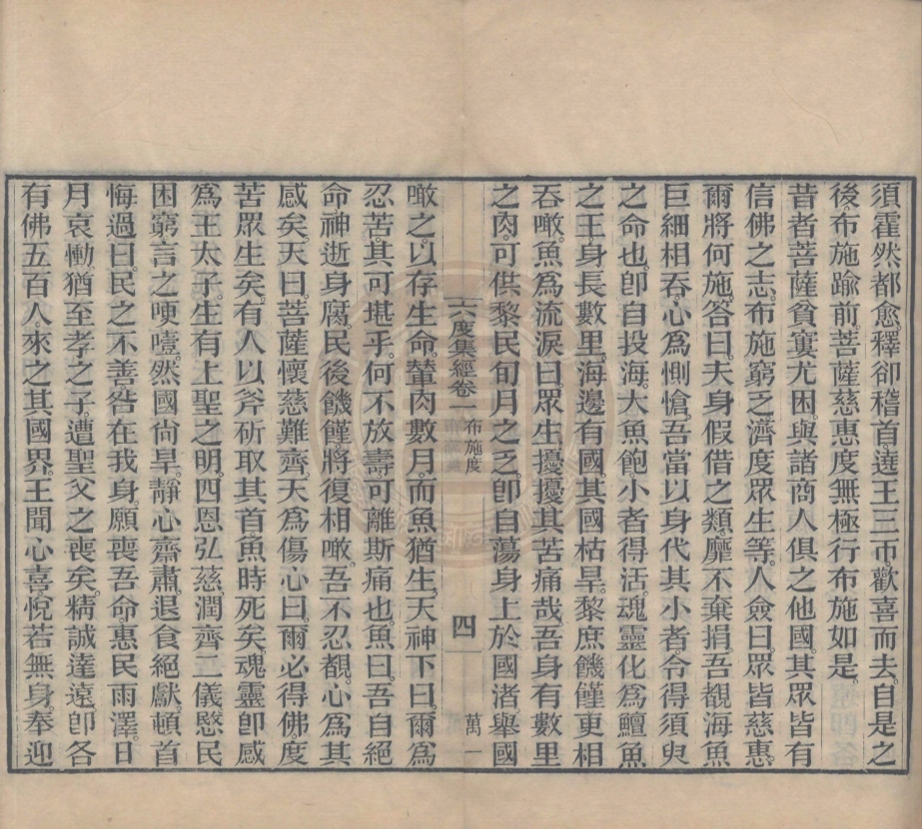 須霍然都愈釋卻稽首遶王三帀歡喜而去自是之
後布施踰前菩薩慈惠度無極行布施如是
昔者菩薩貧窶尤困與諸商人俱之他國其眾皆有
信佛之志布施窮乏濟度眾生等人僉曰眾皆慈惠
爾將何施答曰夫身假借之類靡不棄捐吾覩海魚
巨細相吞心為惻愴吾當以身代其小者令得須臾
之命也卽自投海大魚飽小者得活魂靈化為鱣魚
之王身長數里海邊有國其國枯旱黎庶饑饉更相
吞噉魚為流淚曰眾生擾擾其苦痛哉吾身有數里
之肉可供黎民旬月之乏卽自蕩身上於國渚舉國
六度集經卷一 布施度 四 萬一
噉之以存生命輦肉數月而魚猶生天神下曰爾為
忍苦其可堪乎何不放壽可離斯痛也魚曰吾自絕
命神逝身腐民後饑饉將復相噉吾不忍覩心為其
感矣天曰菩薩懷慈難齊天為傷心曰爾必得佛度
苦眾生矣有人以斧斫取其首魚時死矣魂靈卽感
為王太子生有上聖之明四恩弘慈潤齊二儀愍民
困窮言之哽噎然國尙旱靜心齋肅退食絕獻頓首
悔過曰民之不善咎在我身願喪吾命惠民雨澤日
月哀慟猶至孝之子遭聖父之喪矣精誠達遠卽各
有佛五百人來之其國界王聞心喜悅若無身奉迎